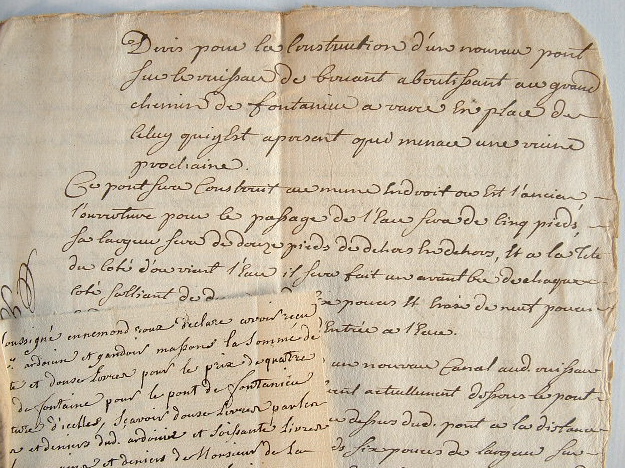 Devis pour la Construction d'un nouveau pont
sur le ruissau de bouant aboutissant au grand
chemin de fontanieu a vavre En place de
Celuy quiy Est apresent qui menace une ruine
prochaine.
Ce pont sera Construit au meme Endroit ou Est l'ancien
l'ouverture pour le passage de l'Eau sera de Cinq pieds,
sa largeur sera de douze pieds de dehors En dehors, Et a la Tete
du Coté d'ou vient l'Eau il sera fait un avant bec de chaque
Coté saillant de
pouces Et de huit pouces
Entrée a l'Eau.
un nouveau Canal aud. ruissau
actuellement dessous le pont
dessus dud. pont a la distance
six pouces de largeur sur
soussigné ennemond roux déclare avoir receu
ardoine et gandoin massons la somme de
et douse Livres pour le prix de quatre
de fontaine pour le pont de fontanieu
d'icelles, sçavoir douse Livres par les
et deniers dud. ardoine et soisante Livres
et deniers de Monsieur de La